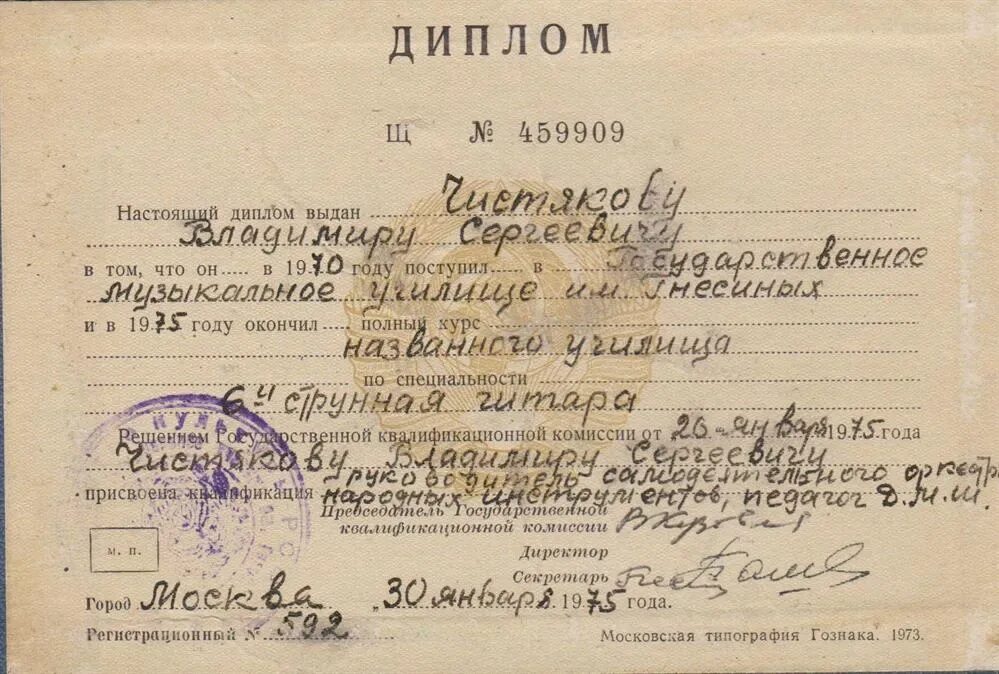 ДИПЛОМ
Щ № 459909
Настоящий диплом выдан Чистякову
Владимиру Сергеевичу
в том, что он в 1970 году поступил в Государственное
музыкальное училище им. Гнесиных
и в 1975 году окончил полный курс
названного училища
по специальности
6и струнная гитара
Решением Государственной квалификационной комиссии от 26 января 1975 года
Чистякову Владимиру Сергеевичу
присвоена квалификация руководитель самодеятельного оркестра
народных инструментов, педагог Д.М.Ш.
Председатель Государственной
квалификационной комиссии
Директор
Секретарь
м. п.
Город Москва 30 января 1975 года.
Регистрационный № 592
Московская типография Гознака. 1973.